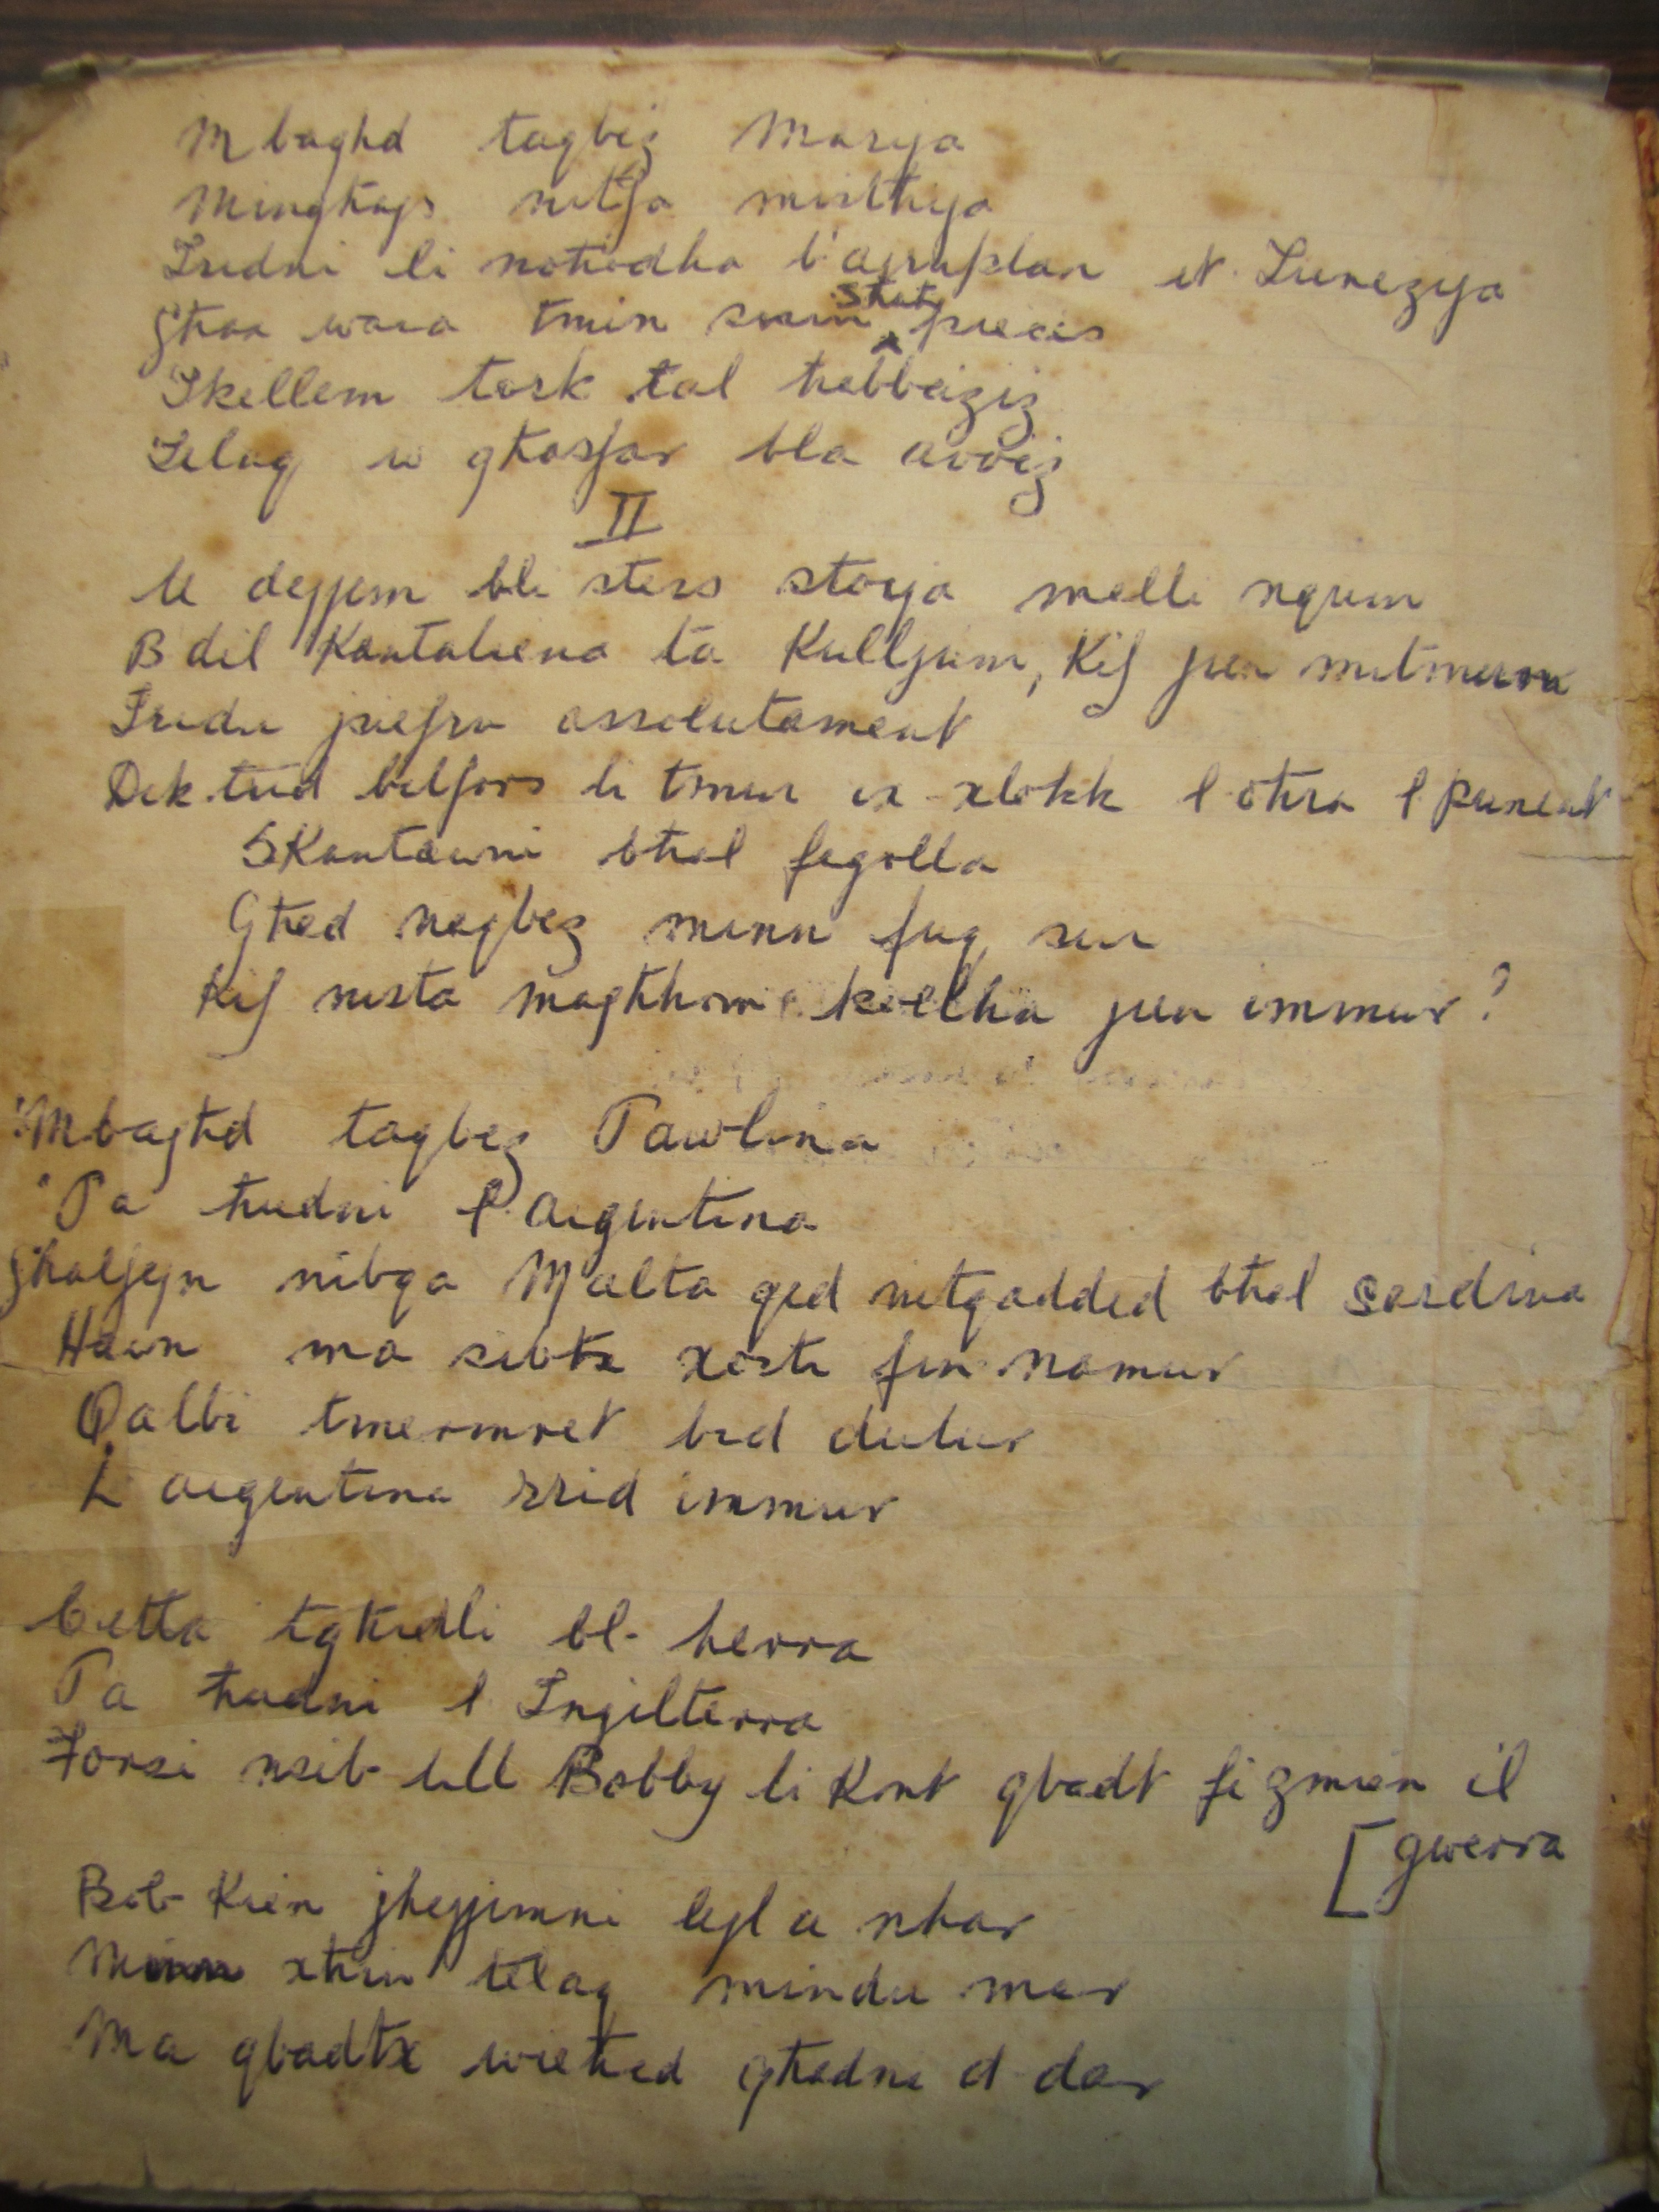 Mbaghd taqbiz Marija
Minghajr nitfa mistħija
Iridni li noħodha b'ajruplan it-Tunezija
Għax wara tmin snin sħaħ preċis
Ikellem tork tal ħebbeiziz
Telaq u għosfor bla avviz
II
U dejjem bli sters storja melli nqum
B dil Kantaliena ta Kulljum, Kif jien mitmum
Iridu jsiefru assolutament
Dik trid bilfors li tmur ix-xlokk l oħra l punent
Skantawni bħal fegolla
Għed naqbez minn fuq sur
Kif nista magħhom kollha jien immur?
Mbagħd taqbez Pawlina
Ta ħudni l-argentina
Għaljejn nibqa Malta qed nitqadded bħal sardina
Hawn ma sibtx xorti fin namur
Qalbi tmermret bid dulur
L argentina rrid immur
Ċetta tgħidli bl-herra
Ta ħudni l Ingilterra
Forsi nsib lill Bobby li Kont qbadt fi zmien il
[gwerra
Bob Kien jhejjimni lejl u nhar
Minn xħin telaq mindu mar
Ma qbadtx wieħed għadni d-dar